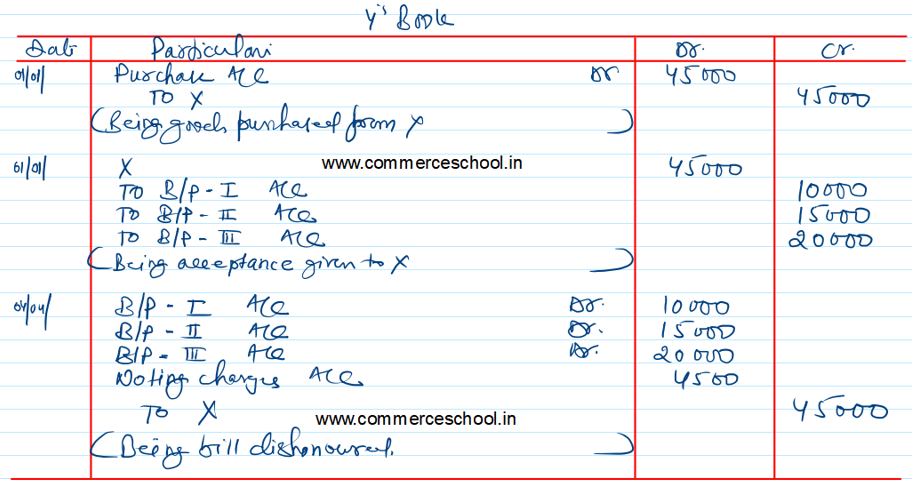 Y's Book
Date Particulars Dr. Cr.
01/01/ Purchase A/c Dr 45000
To X 45000
(Being goods purchased from X)
01/01/ X www.commerceschool.in 45000
To B/P - I A/c 10000
To B/P - II A/c 15000
To B/P - III A/c 20000
(Being acceptance given to X)
04/04/ B/P - I A/c Dr. 10000
B/P - II A/c Dr. 15000
B/P - III A/c Dr. 20000
Noting charges A/c 4500
To X www.commerceschool.in 45000
(Being bill dishonoured.)